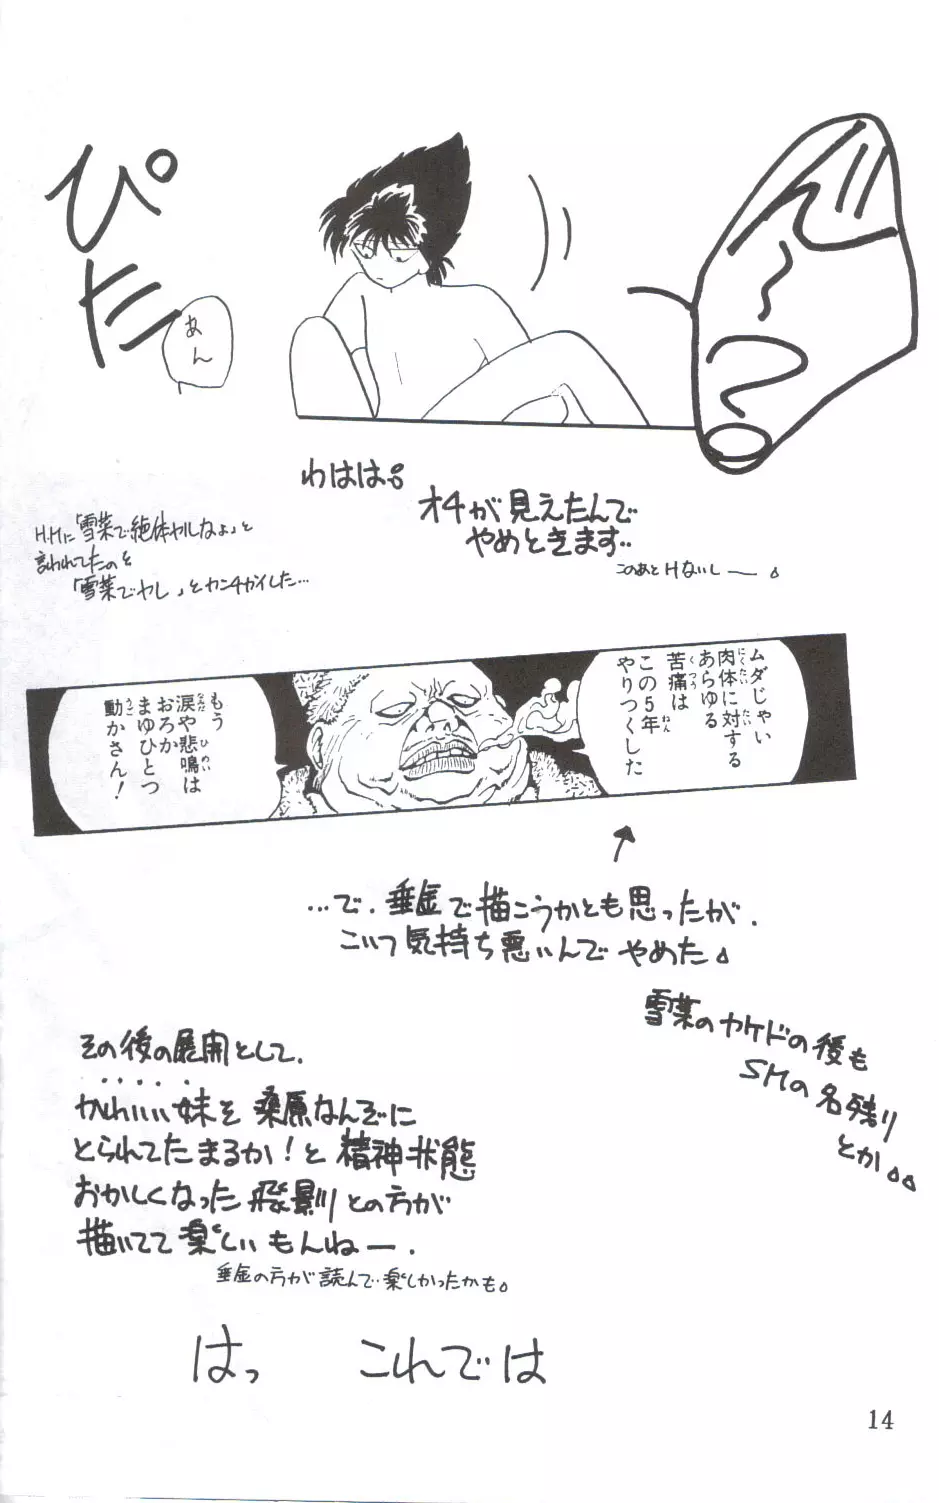 ぴた
あん
わはは。
オチが見えたんで
やめときます‥
このあとHないしー。
H.Hに「雪菜で絶体ヤルなよ」と
言われてたのを
「雪菜でヤレ」とカンチガイした…
ムダじゃい
肉体に対する
あらゆる
苦痛は
この5年
やりつくした
もう
涙や悲鳴は
おろか
まゆひとつ
動かさん!
…で、垂金で描こうかとも思ったが、
こいつ気持ち悪いんでやめた。
雪菜のヤケドの後も
SMの名残り
とか。。
その後の展開として、
かわいい妹を桑原なんぞに
とられてたまるか!と精神状態
おかしくなった飛影との方が
描いてて楽しいもんねー.
垂金の方が読んで楽しかったかも。
はっ これでは
14